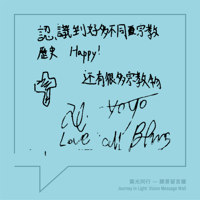 認識到好多不同亞宗教
歷史 Happy!
还有很多宗教物
YOYO
Love all
與光同行 — 觀眾留言牆
Journey in Light: Visitor Message Wall